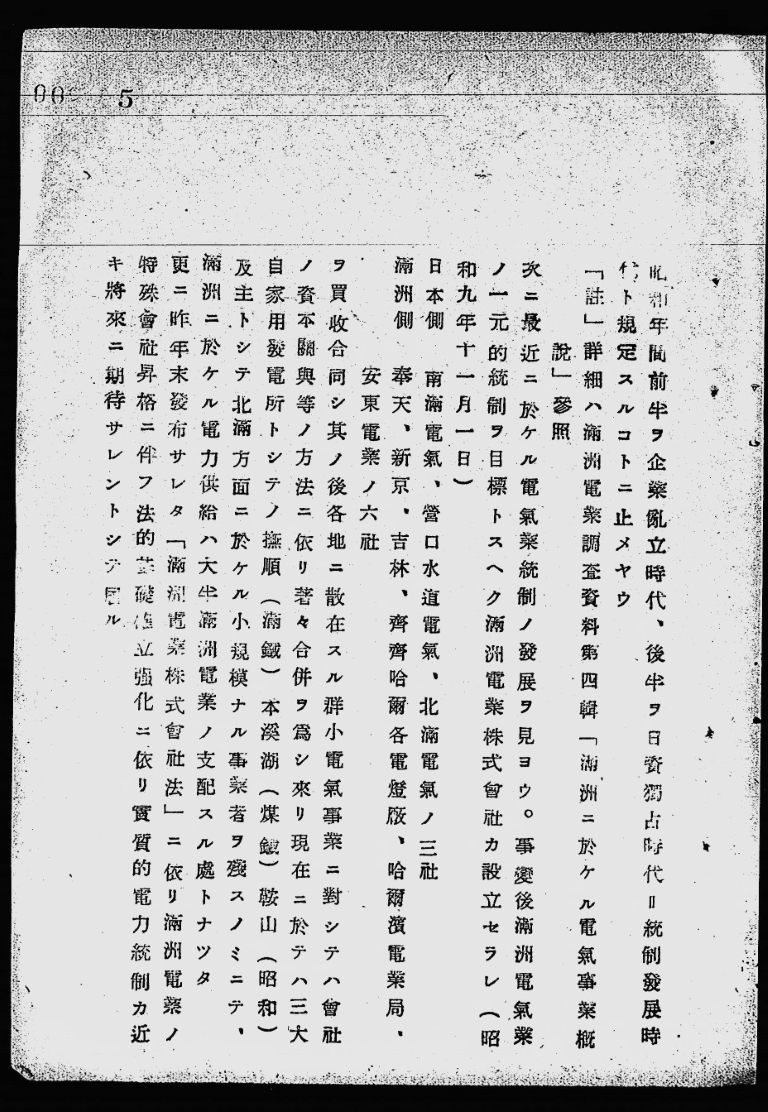 00 5
昭和年間前半ヲ企業亂立時代、後半ヲ日資獨占時代＝統制發展時
代ト規定スルコトニ止メヤウ
「註」詳細ハ滿洲電業調査資料第四輯「滿洲ニ於ケル電氣事業概
說」參照
次ニ最近ニ於ケル電氣業統制ノ發展ヲ見ヨウ。事變後滿洲電氣業
ノ一元的統制ヲ目標トスヘク滿洲電業株式會社カ設立セラレ（昭
和九年十一月一日）
日本側 南滿電氣、營口水道電氣、北滿電氣ノ三社
滿洲側 奉天、新京、吉林、齊齊哈爾各電燈廠、哈爾濱電業局、
安東電業ノ六社
ヲ買收合同シ其ノ後各地ニ散在スル群小電氣事業ニ對シテハ會社
ノ資本關與等ノ方法ニ依リ著々合併ヲ爲シ來リ現在ニ於テハ三大
自家用發電所トシテノ撫順（滿鐵）本溪湖（煤鐵）鞍山（昭和）
及主トシテ北滿方面ニ於ケル小規模ナル事業者ヲ殘スノミニテ、
滿洲ニ於ケル電力供給ハ大半滿洲電業ノ支配スル處トナツタ
更ニ昨年末發布サレタ「滿洲電業株式會社法」ニ依リ滿洲電業ノ
特殊會社昇格ニ伴フ法的基礎確立强化ニ依リ實質的電力統制カ近
キ將來ニ期待サレントシテ居ル